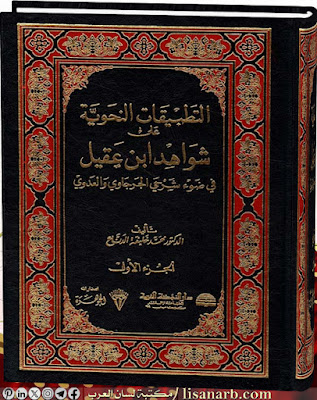 التطبيقات النحوية
على
شواهد ابن عقيل
في ضوء شرحي الجرجاوي والعدوي
تأليف
الدكتور محمد خليفة الدناع
الجزء الأول
lisanarb.com/مكتبة لسان العرب